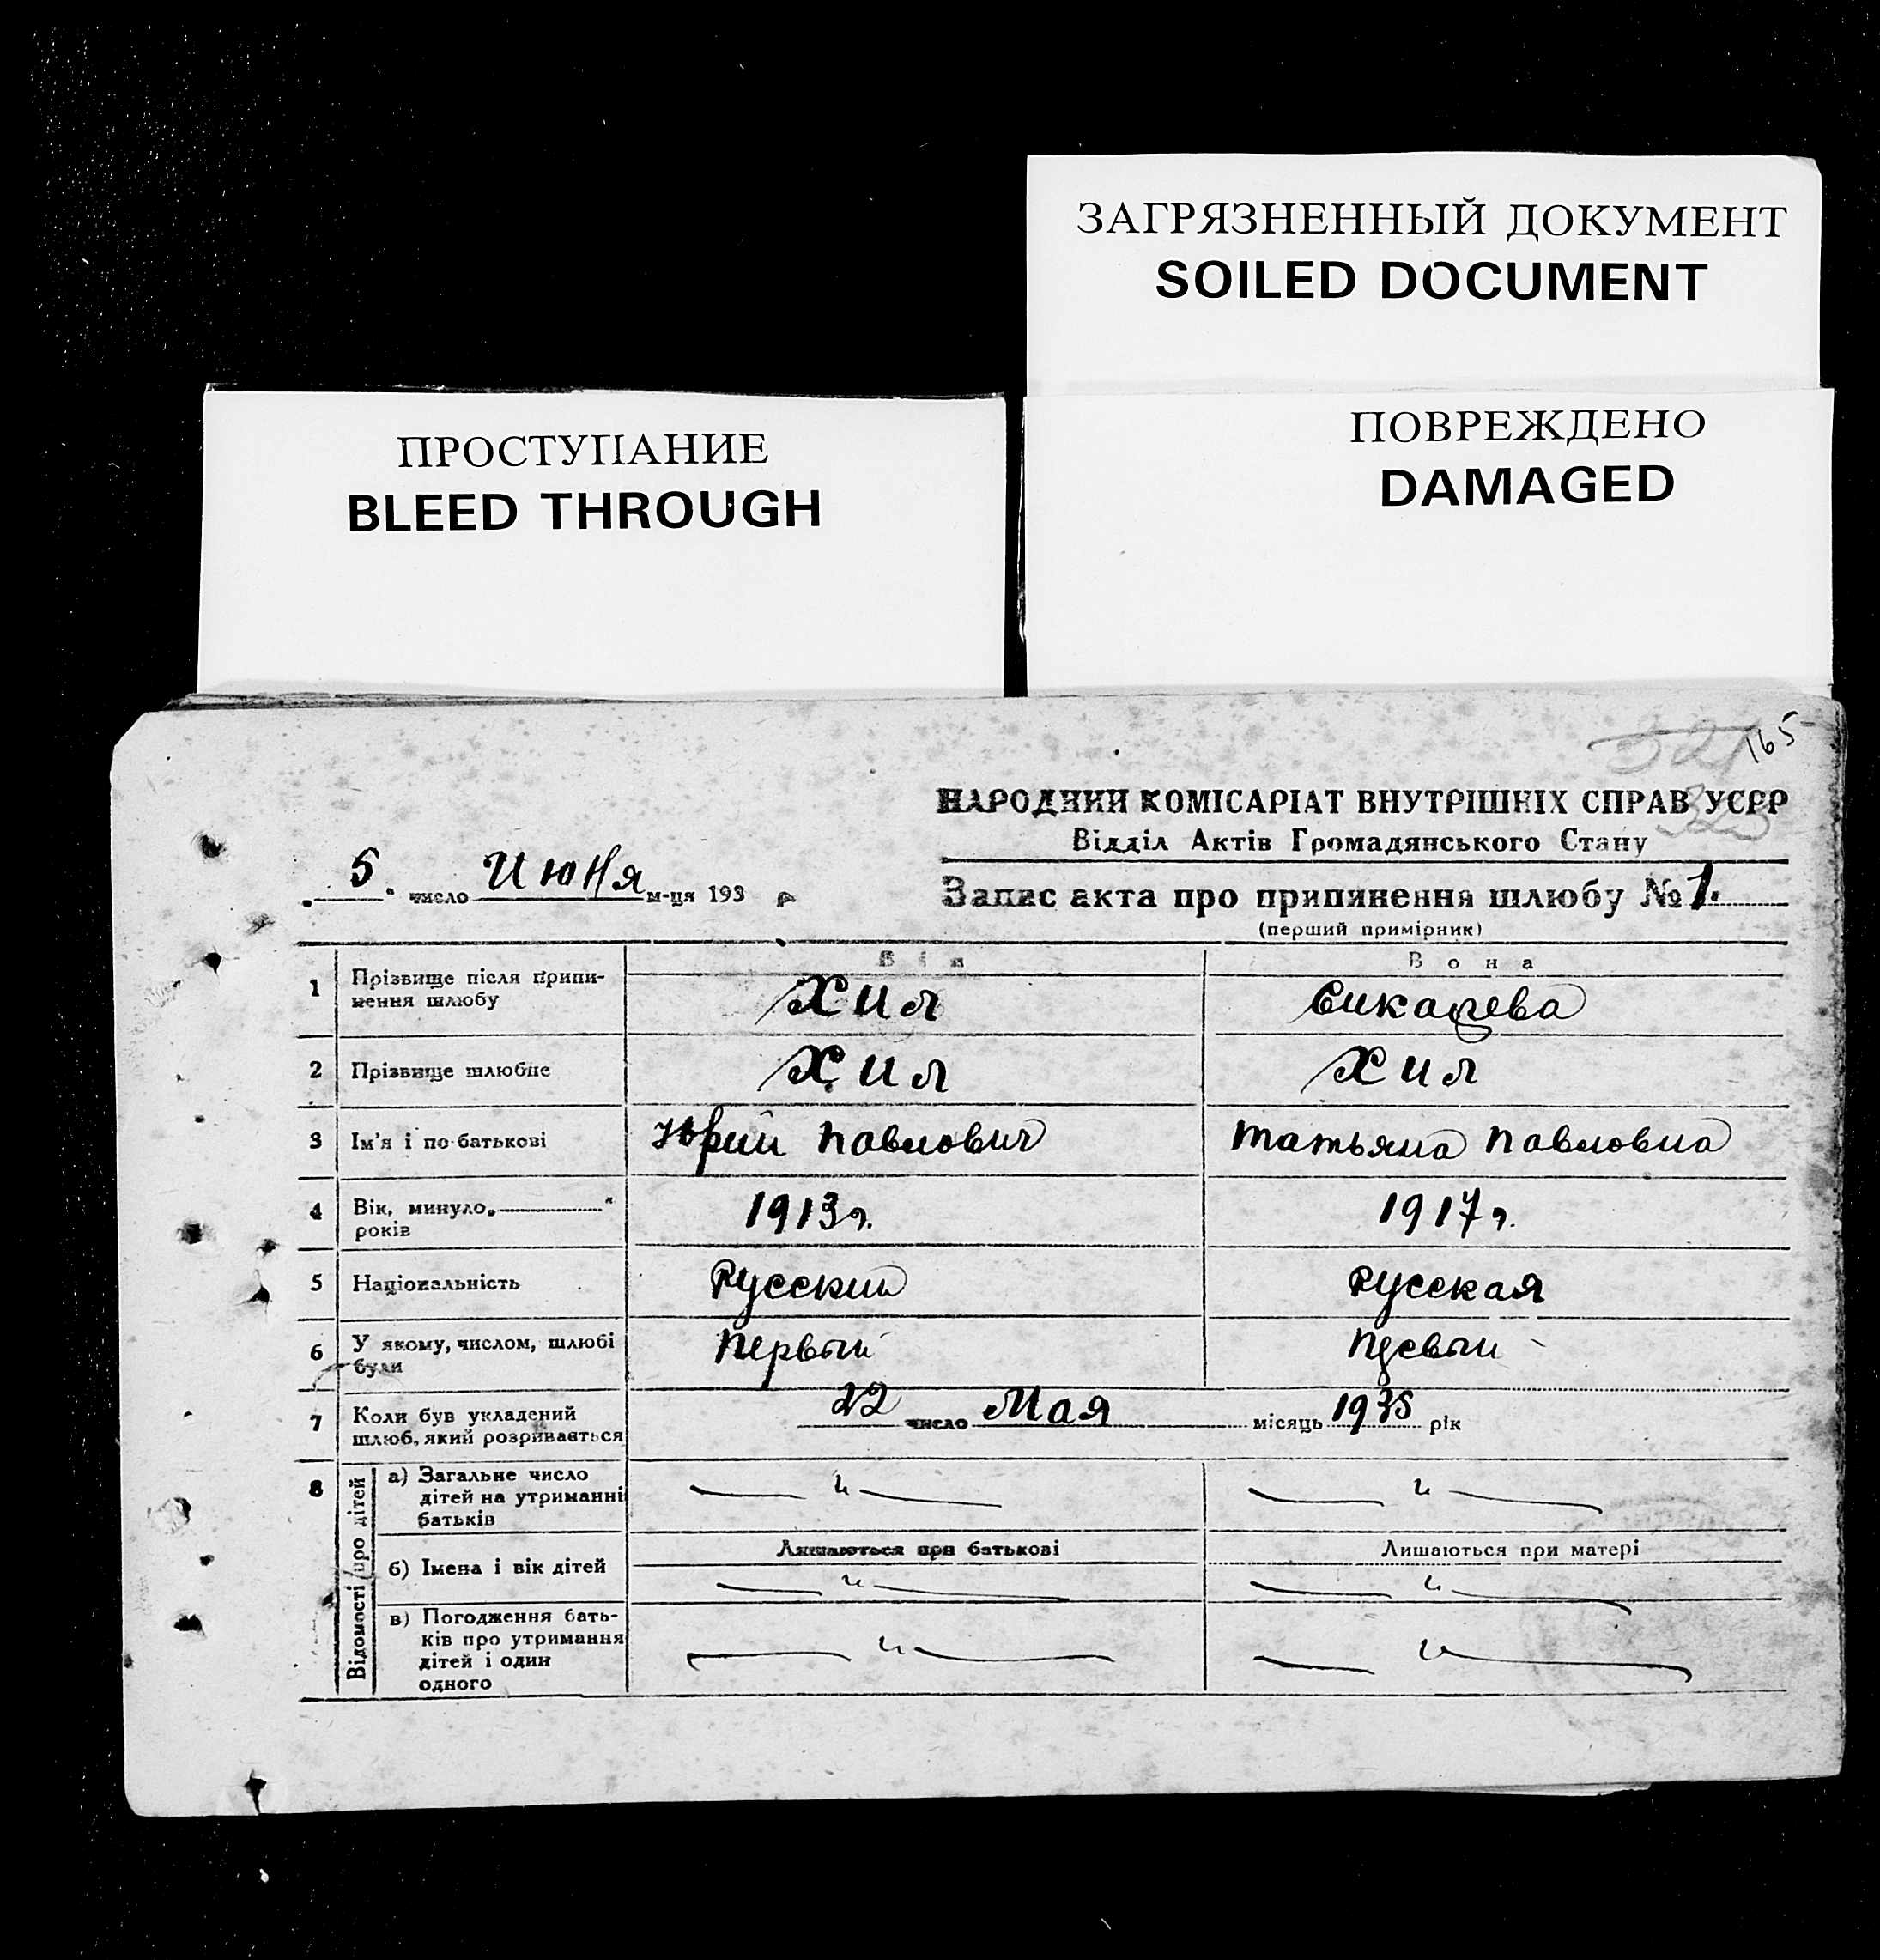 ЗАГРЯЗНЕННЫЙ ДОКУМЕНТ
SOILED DOCUMENT
ПРОСТУПАНИЕ
BLEED THROUGH
ПОВРЕЖДЕНО
DAMAGED
165
НАРОДНИЙ КОМІСАРІАТ ВНУТРІШНІХ СПРАВ УСРР
Відділ Актів Громадянського Стану
5. число Июня м-ця 193 р
Запис акта про припинення шлюбу № 1.
(перший примірник)
Він Вона
1 Прізвище після припи-
нення шлюбу Хил
2 Прізвище шлюбне Хил Хил
3 Ім'я і по-батькові Юрий Павлович Татьяна Павловна
4 Вік, минуло „ “
років 1913г. 1917г.
5 Національність Русский Русская
6 У якому, числом, шлюбі
були Первый
7 Коли був укладений
шлюб, який розривається 22 число Мая місяць 1935 рік
8 Відомості про дітей
а) Загальне число
дітей на утриманні
батьків — " — — " —
Лишаються при батькові Лишаються при матері
б) Імена і вік дітей — " — — " —
в) Погодження бать-
ків про утримання
дітей і один
одного — " — — " —